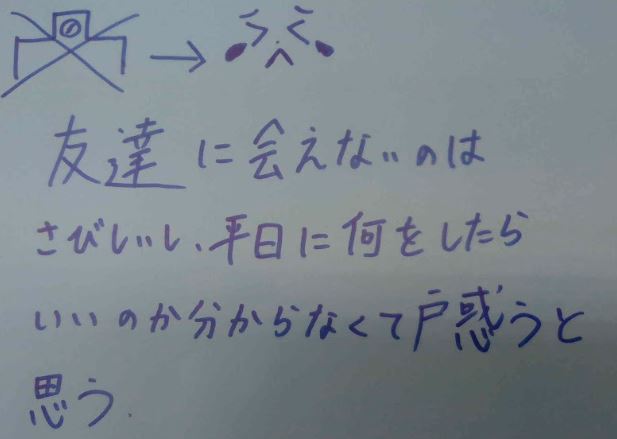 友達に会えないのは
さびしいし、平日に何をしたら
いいのか分からなくて戸惑うと
思う.